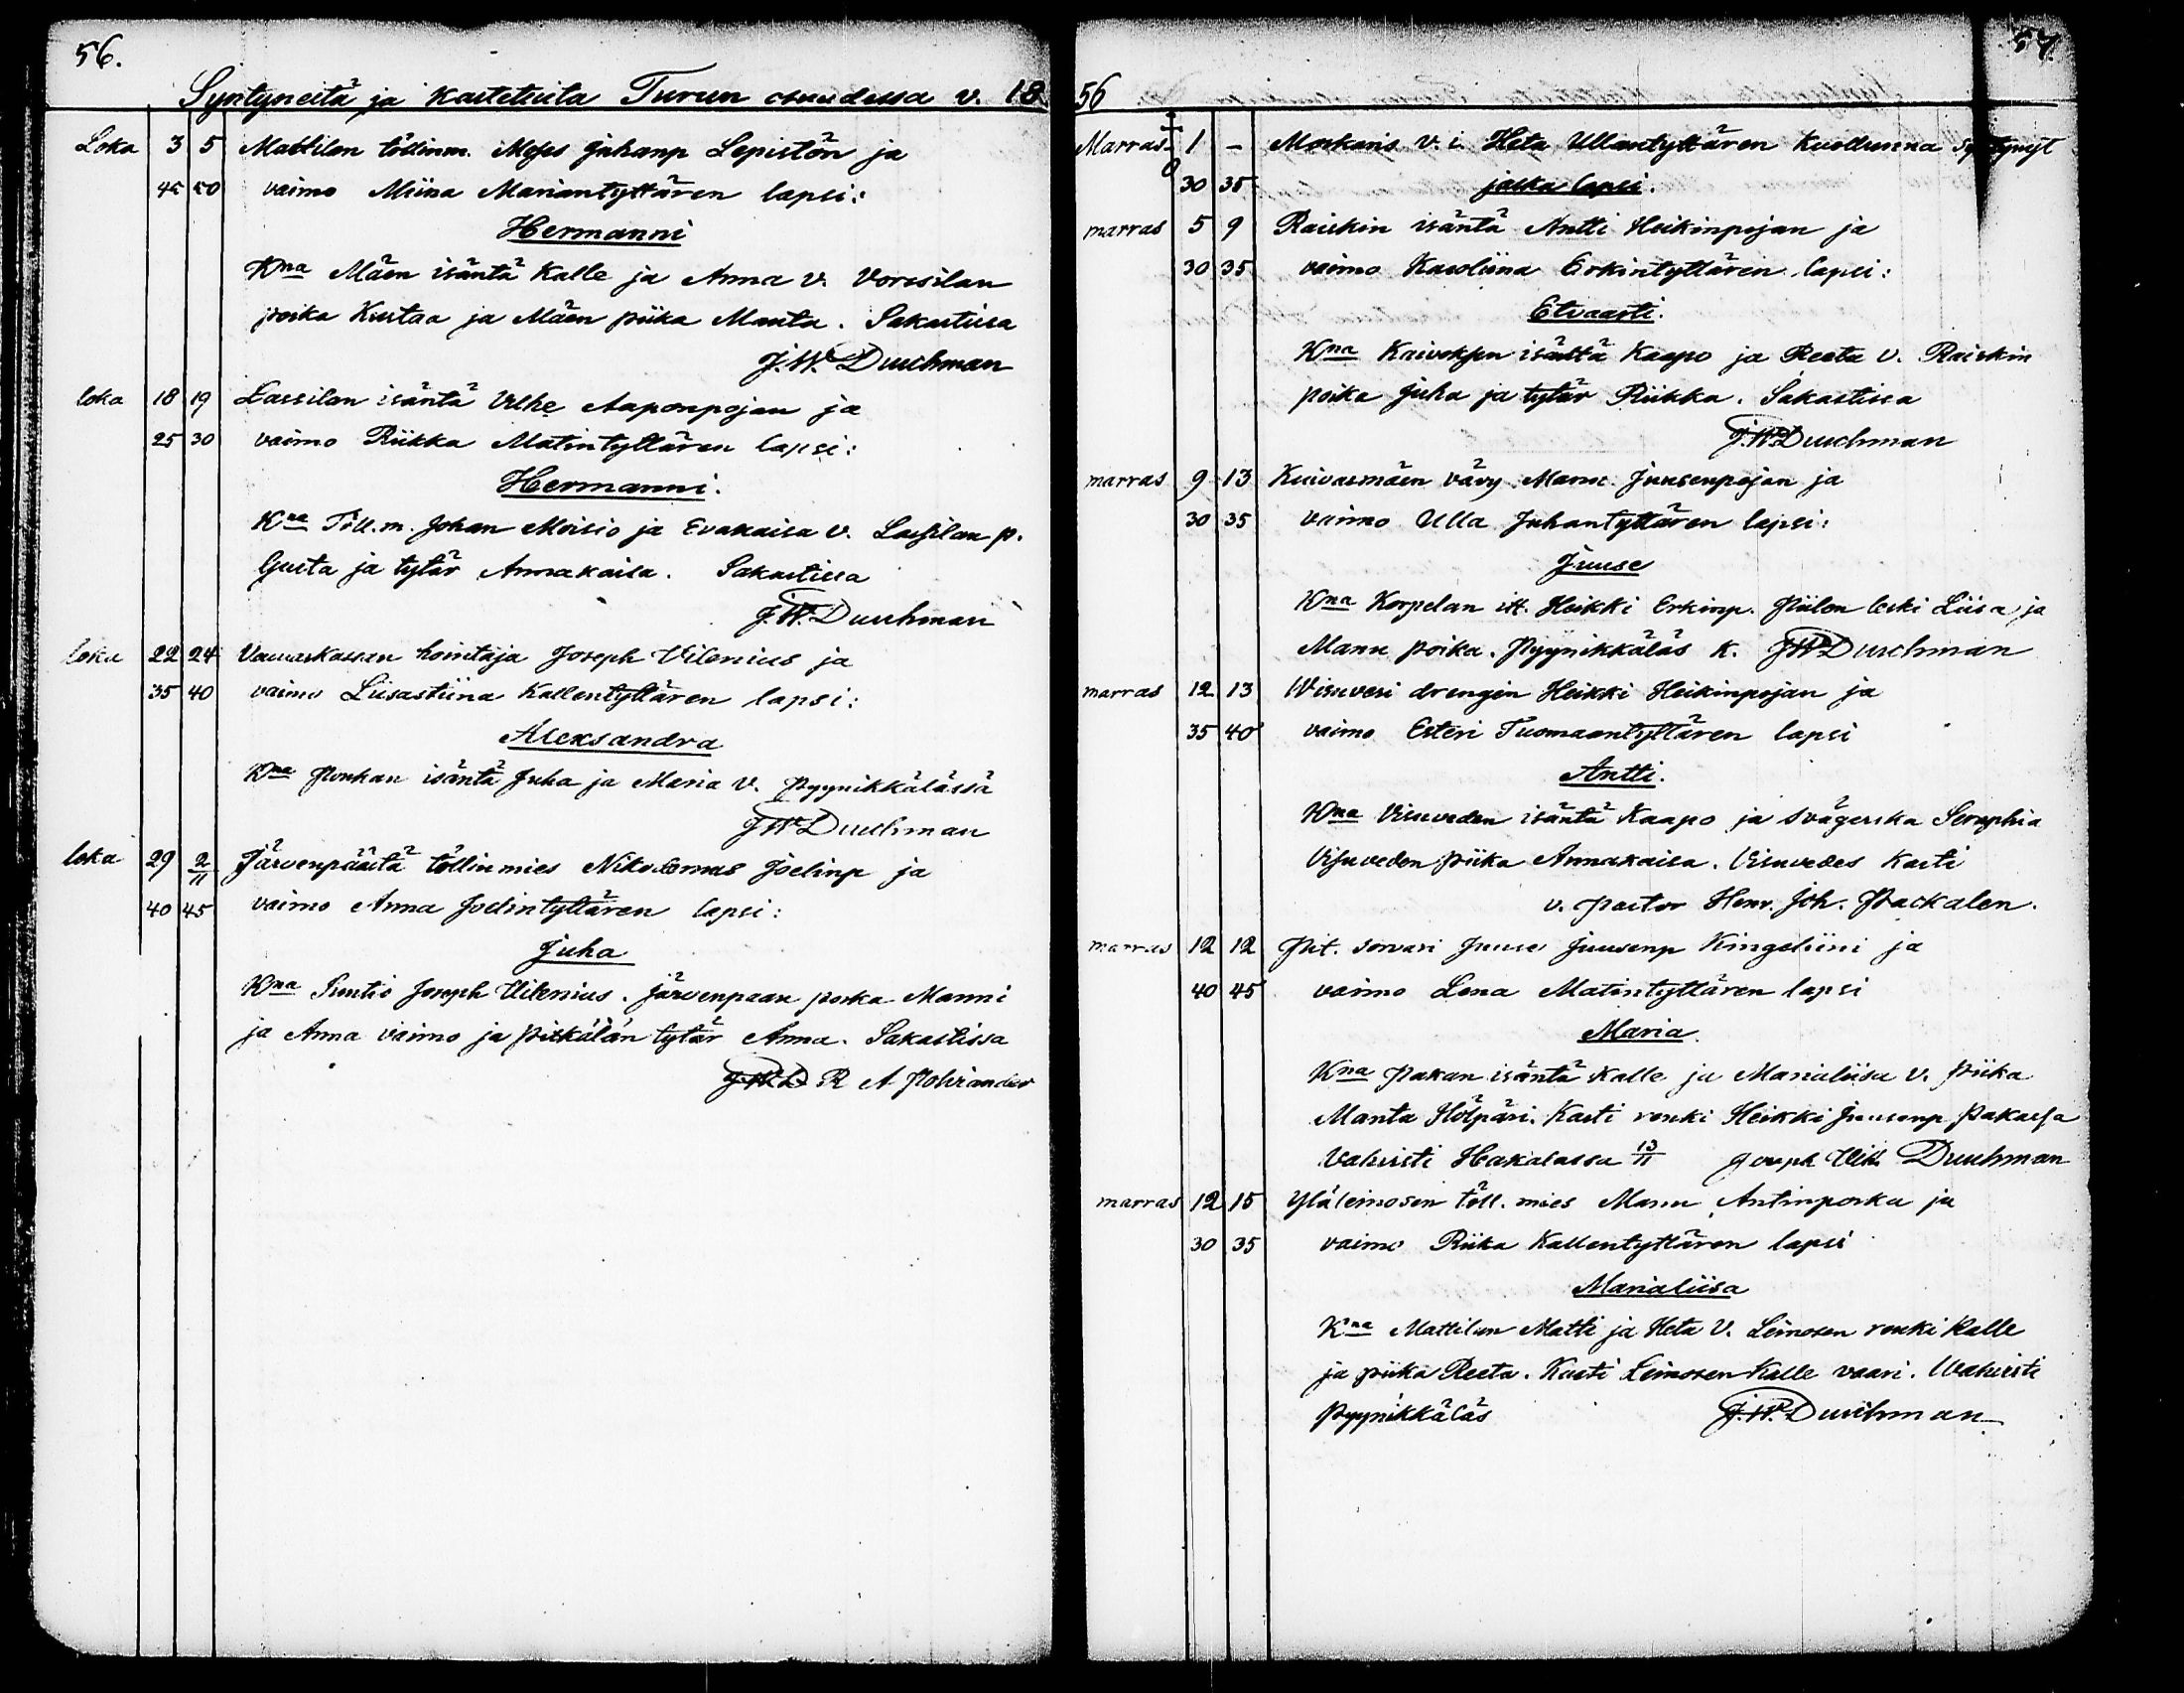 56.
Syntyneitä ja kastetuita Turun osuudessa v. 18
Loka 3 5 Mattilan töllinm. Moses Juhanp Lepistön ja
45 50 vaimo Miina Mariantyttären lapsi:
Hermanni
Kna Mäen isäntä Kalle ja Anna v. Voresilan
poika Kustaa ja Mäen piika Manta. Sakastissa
J.W. Duuchman
loka 18 19 Lassilan isäntä Vilhe Aaponpojan ja
25 30 vaimo Riikka Matintyttären lapsi:
Hermanni.
Kna Töll.m. Johan Moisio ja Evakaisa v. Lassilan p.
Gusta ja tytär Annakaisa. Sakastissa
J.W. Duuchman
loka 22 24 Vaivaskassan hointaja Joseph Vilenius ja
35 40 vaimo Liisastiina Kallentyttären lapsi:
Aleksandra
Kna Ponkan isäntä Juha ja Maria v. Pyynikkälässä
JW Duuchman
loka 29 2/11 Järvenpäästä töllinmies Nikodemus Joelinp ja
40 45 vaimo Anna Joelintyttären lapsi:
Juha
Kna Suntio Joseph Vilenius. Järvenpaan poika Manni
ja Anna vaimo ja pitkälän tytär Anna. Sakastissa
J.W.D R A Polviander
57.
56
Marras 1 - Morkaris v. i. Heta Ullantyttären Kuollunna syntynyt
30 35 jalka lapsi.
marras 5 9 Raiskin isäntä Antti Heikinpojan ja
30 35 vaimo Karoliina Erkintyttären lapsi:
Etvaarti.
Kna Kaivoksen isäntä Kaapo ja Reeta v. Raiskin
poika Juha ja tytär Riikka. Sakastissa
J.W. Duuchman
marras 9 13 Kuivasmäen vävy Manu Juusenpojan ja
30 35 vaimo Ulla Juhantyttären lapsi:
Juuse
Kna Korpelan itt. Heikki Erkinp. Piilon leski Liisa ja
Manu poika. Pyynikkäläs K. JW Duuchman
marras 12 13 Wisuvesi drengin Heikki Heikinpojan ja
35 40 vaimo Esteri Tuomaantyttären lapsi
Antti.
Kna Visuveden isäntä Kaapo ja svägerska Seraphia
Visuveden piika Annakaisa. Visuvedes Kasti
v. pastor Henr. Joh. Packalen.
marras 12 12 Pit. sorvari Juuse Juusenp Kingeliini ja
40 45 vaimo Lena Matintyttären lapsi
Maria.
Kna Pakan isäntä Kalle ja Marialiisa v. piika
Manta Hölpäri. Kasti renki Heikki Juusenp Pakassa
Vahvisti Hakalassa 13/11 Joseph Wilh Duuchman
marras 12 15 Yläleinosen töll. mies Manu Antinpoika ja
30 35 vaimo Riika Kallentyttären lapsi
Marialiisa
Kna Mattilan Matti ja Heta V. Leinosen renki Kalle
ja piika Reeta. Kasti Leinosen Kalle vaari. Wahvisti
Pyynikkäläs J.W. Duuchman